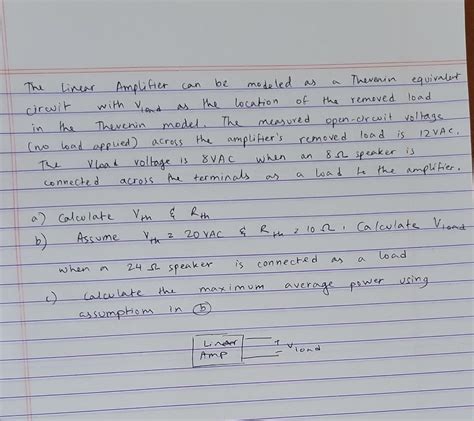 The Linear Amplifier can be modeled as a Thevenin equivalent
circuit with Vload as the location of the removed load
in the Thevenin model. The measured open-circuit voltage
(no load applied) across the amplifier's removed load is 12VAC.
The Vload voltage is 8VAC when an 8Ω speaker is
connected across the terminals as a load to the amplifier.
a) Calculate Vth & Rth
b) Assume Vth = 20 VAC & Rth = 10 Ω. Calculate Vload
when a 24 Ω speaker is connected as a load
c) Calculate the maximum average power using
assumptions in (b)
Linear + 
Amp - Vload